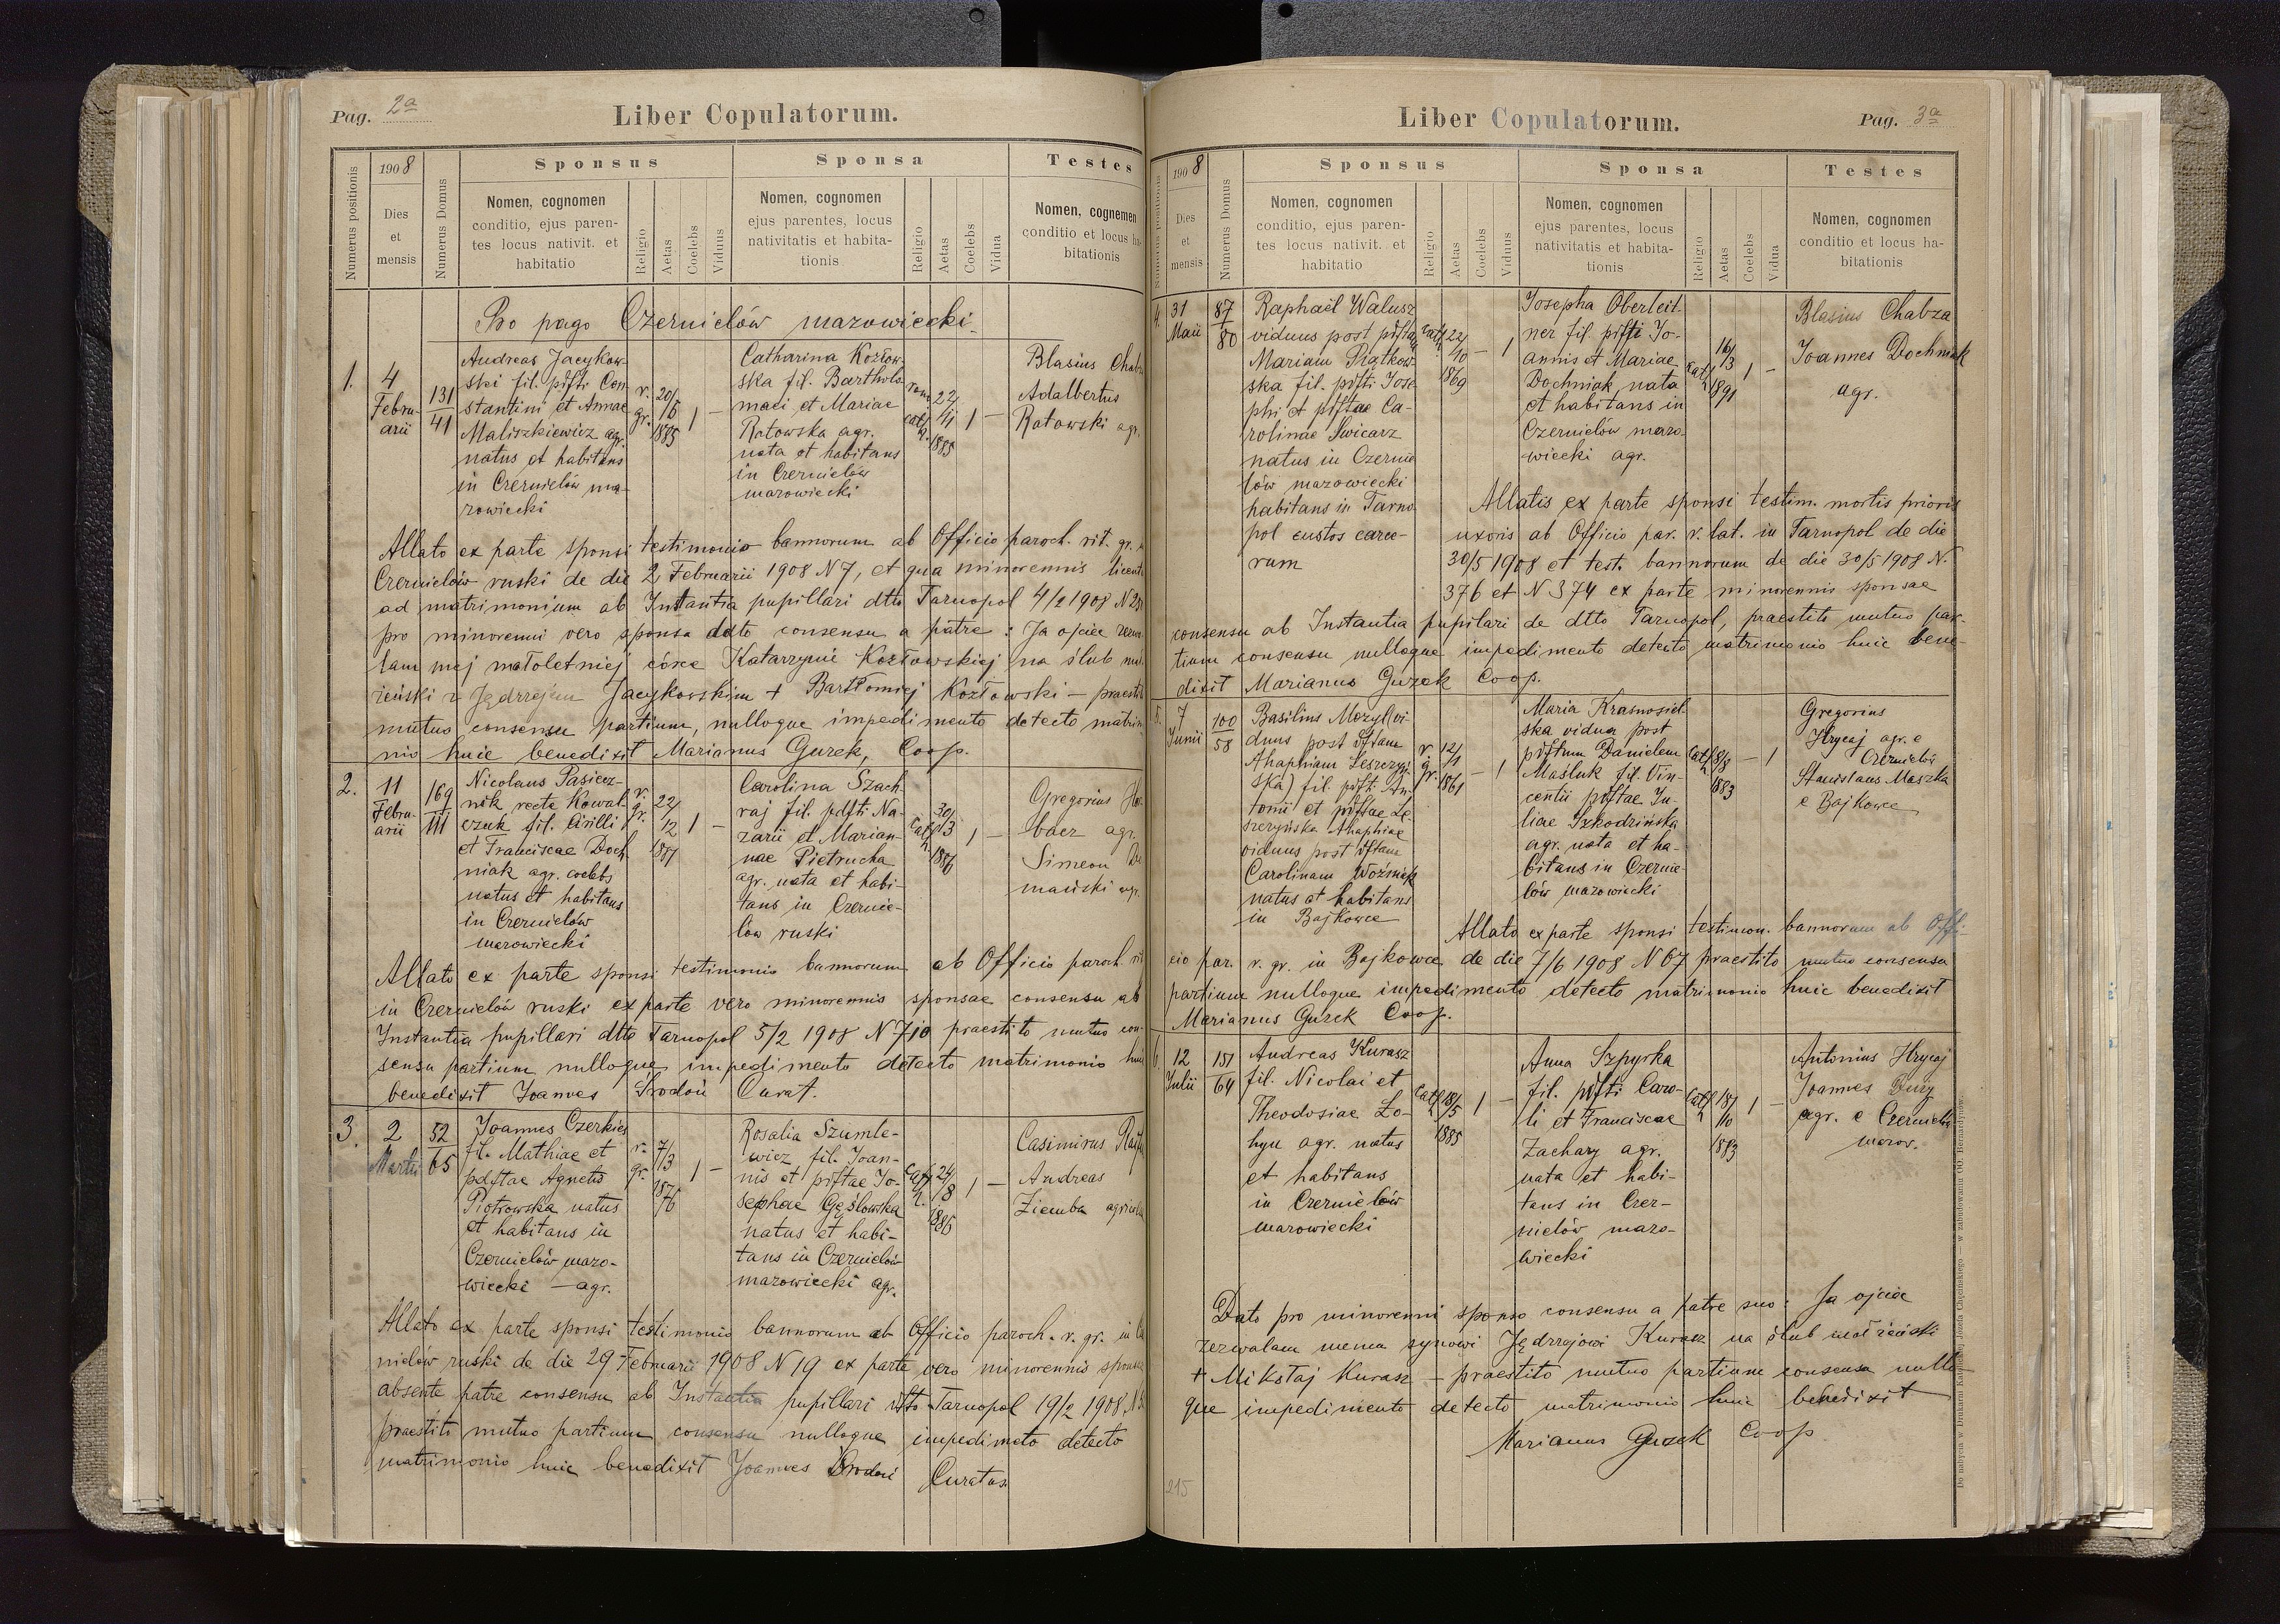 Pag. 2a
Liber Copulatorum.
Numerus positionis
1908
Dies
et
mensis
Numerus Domus
Sponsus
Nomen, cognomen
conditio, ejus paren-
tes locus nativit. et
habitatio
Religio
Aetas
Coelebs
Viduus
Sponsa
Nomen, cognomen
ejus parentes, locus
nativitatis et habita-
tionis
Religio
Aetas
Coelebs
Vidua
Testes
Nomen, cognemen
conditio et locus ha-
bitationis
Pro pago Czernielów mazowiecki
1.
4
Febru-
arii
131
41
Andreas Jacykow-
ski fil. pdfti Con-
stantini et Annae
Maliszkiewicz agr.
natus et habitans
in Czernielów ma-
zowiecki
r.
gr.
20/
/6
1885
1 –
Catharina Kozłow-
ska fil. Bartholo-
maei et Mariae
Rotowska agr.
nata et habitans
in Czernielów
mazowiecki
rom.
cath.
22/
/11
1885
1 –
Blasius
Adalbertus
Rotowski agr.
Allato ex parte sponsi testimonio bannorum ab Officio paroch. rit. gr.
Czernielów ruski de die 2 Februarii 1908 N 7, et qua minorennis
ad matrimonium ab Instantia pupillari dtto Tarnopol 4/2 1908
pro minorenni vero sponsa ddto consensu a patre: Ja ojciec
lam mej małoletniej córce Katarzynie Kozłowskiej na ślub
żeński z Jędrzejem Jacykowskim + Bartłomiej Kozłowski –
mutuo consensu partium, nulloque impedimento detecto
nio huic benedixit Marianus Gurek, Coop.
2.
11
Febru-
arii
169
111
Nicolaus Pasiecz-
nik recte Kowal-
czuk fil. Cirilli
et Franciscae Doch-
niak agr. coelebs
natus et habitans
in Czernielów
mazowiecki
r.
gr.
22/
12
1881
1 –
Carolina Szach
raj fil. pdfti Na-
zarii et Marian-
nae Pietrucha
agr. nata et habi-
tans in Czernie-
lów ruski
Cath
30/
/3
1886
1 –
Gregorius
bacz agr.
Simeon
mański agr.
Allato ex parte sponsi testimonio bannorum ab Officio paroch
in Czernielów ruski ex parte vero minorennis sponsae consensu ab
Instantia pupillari dtto Tarnopol 5/2 1908 N 7/0 praestito mutuo con-
sensu partium nulloque impedimento detecto matrimonio
benedixit Joannes Curat.
3.
2
Martii
52
65
Joannes Czerkies
fil. Mathiae et
pdftae Agnetis
Piotrowska natus
et habitans in
Czernielów mazo-
wiecki – agr.
r.
gr.
7/3
1876
1 –
Rosalia Szumle-
wicz fil. Joan-
nis et pdftae Jo-
sephae Gęślowska
natus et habi-
tans in Czernielów
mazowiecki agr.
Cath
24/
/8
1885
1 –
Casimirus
Andreas
Ziemba
Allato ex parte sponsi testimonio bannorum ab Officio paroch. r. gr. in
nielów ruski de die 29 Februarii 1908 N 19 ex parte vero minorennis sponsae
absente patre consensu ab Instantia pupillari dtto Tarnopol 19/2 1908
praestito mutuo partium consensu nulloque impedimeto detecto
matrimonio huic benedixit Joannes Curatus
Liber Copulatorum.
Pag. 3a
Numerus positionis
1908
Dies
et
mensis
Numerus Domus
Sponsus
Nomen, cognomen
conditio, ejus paren-
tes locus nativit. et
habitatio
Religio
Aetas
Coelebs
Viduus
Sponsa
Nomen, cognomen
ejus parentes, locus
nativitatis et habita-
tionis
Religio
Aetas
Coelebs
Vidua
Testes
Nomen, cognomen
conditio et locus ha-
bitationis
4.
31
Maii
87
80
Raphaël Walusz
viduus post pdftam
Mariam Piątkow-
ska fil. pdfti Jose-
phi et pdftae Ca-
rolinae Swicarz
natus in Czernie
lów mazowiecki
habitans in Tarno
pol custos carce-
rum
Cath
22/
10
1869
– 1
Josepha Oberleit-
ner fil. pdfti Jo-
annis et Mariae
Dochniak nata
et habitans in
Czernielów mazo-
wiecki agr.
Cath
16/
/3
1891
1 –
Blasius Chabza
Joannes Dochniak
agr.
Allatis ex parte sponsi testim. mortis prioris
uxoris ab Officio par. r. lat. in Tarnopol de die
30/5 1908 et test. bannorum de die 30/5 1908 N.
376 et N 374 ex parte minorennis sponsae
consensu ab Instantia pupilari de dtto Tarnopol, praestito mutuo par-
tium consensu nulloque impedimento detecto matrimonio huic bene-
dixit Marianus Gurek Coop.
5.
7
Junii
100
58
Basilius Mozyl (vi-
duus post dftam
Ahaphiam Leszczyń-
ska) fil. pdfti An-
tonii et pdftae Le-
szczyńska Ahaphiae
viduus post dftam
Carolinam Woźniak
natus et habitans
in Bajkowce
r.
gr.
12/
/1
1861
– 1
Maria Krasnosiel-
ska vidua post
pdftum Danielem
Maśluk fil. Vin-
centii pdftae Ju-
liae Szkodzińska
agr. nata et ha-
bitans in Czernie-
lów mazowiecki
Cath
8/8
1883
– 1
Gregorius
Hrycaj agr. e
Czernielów
Stanislaus Maszka
e Bajkowce
Allato ex parte sponsi testimon. bannorum ab Offi-
cio par. r. gr. in Bajkowce de die 7/6 1908 N 67 praestito mutuo consensu
partium nulloque impedimento detecto matrimonio huic benedixit
Marianus Gurek Coop.
6.
12
Julii
151
64
Andreas Kurasz
fil. Nicolai et
Theodosiae Ło-
hyn agr. natus
et habitans
in Czernielów
mazowiecki
Cath
18/
/5
1885
1 –
Anna Szpyrka
fil. pdfti Caro-
li et Franciscae
Zachary agr.
nata et habi-
tans in Czer-
nielów mazo-
wiecki
Cath
18/
/10
1883
1 –
Antonius Hrycaj
Joannes Bury
agr. e Czernielów
mazow.
Dato pro minorenni sponso consensu a patre suo: Ja ojciec
zezwalam memu synowi Jędrzejowi Kurasz na ślub małżeński
+ Mikołaj Kurasz – praestito mutuo partium consensu nullo-
que impedimento detecto matrimonio huic benedixit
Marianus Gurek Coop
215